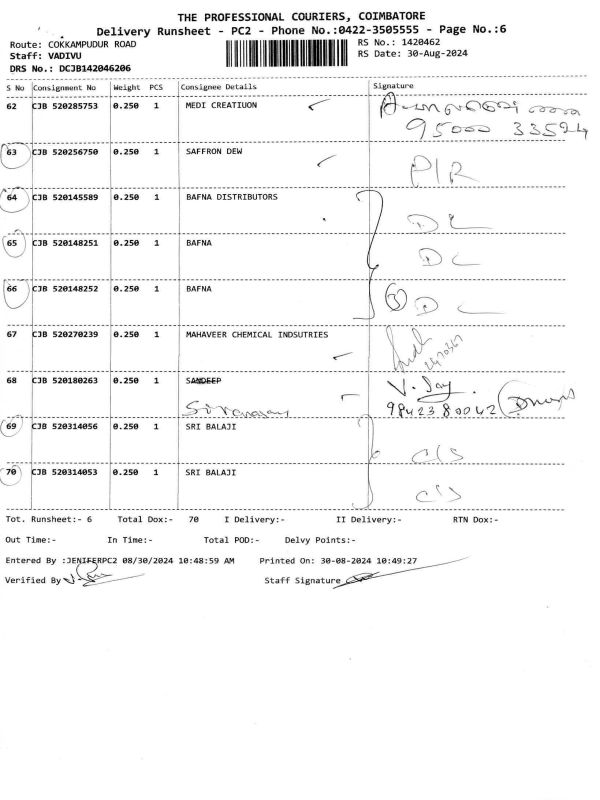 THE PROFESSIONAL COURIERS, COIMBATORE
Delivery Runsheet - PC2 - Phone No.:0422-3505555 - Page No.:6
Route: COKKAMPUDUR ROAD RS No.: 1420462
Staff: VADIVU RS Date: 30-Aug-2024
DRS No.: DCJB142046206
S No Consignment No Weight PCS Consignee Details Signature
62 CJB 520285753 0.250 1 MEDI CREATIUON
95000 33524
63 CJB 520256750 0.250 1 SAFFRON DEW
P/R
64 CJB 520145589 0.250 1 BAFNA DISTRIBUTORS
DL
65 CJB 520148251 0.250 1 BAFNA
DL
66 CJB 520148252 0.250 1 BAFNA
3 DL
67 CJB 520270239 0.250 1 MAHAVEER CHEMICAL INDSUTRIES
68 CJB 520180263 0.250 1 SANDEEP
V. Jay
9842380042
69 CJB 520314056 0.250 1 SRI BALAJI
C/S
70 CJB 520314053 0.250 1 SRI BALAJI
C/S
Tot. Runsheet:- 6 Total Dox:- 70 I Delivery:- II Delivery:- RTN Dox:-
Out Time:- In Time:- Total POD:- Delvy Points:-
Entered By :JENIFERPC2 08/30/2024 10:48:59 AM Printed On: 30-08-2024 10:49:27
Verified By Staff Signature